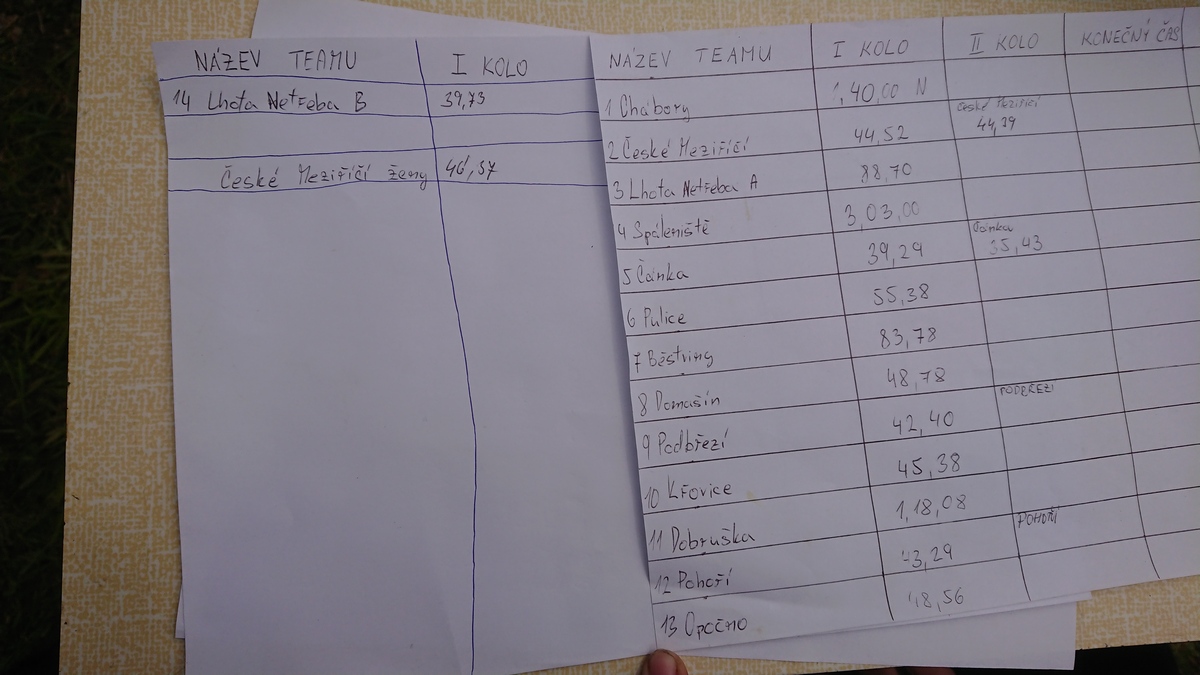 NÁZEV TEAMU I KOLO
14 Lhota Netřeba B 39,73
České Meziříčí ženy 46,57
NÁZEV TEAMU I KOLO II KOLO KONEČNÝ ČAS
1 Chábory 1,40,00 N
2 České Meziříčí 44,52 České Meziříčí 44,39
3 Lhota Netřeba A 88,70
4 Spáleniště 3,03,00
5 Čánka 39,29 Čánka 35,43
6 Pulice 55,38
7 Běstviny 83,78
8 Domašín 48,78
9 Podbřezí 42,40 PODBŘEZÍ
10 Křovice 45,38
11 Dobruška 1,18,08
12 Pohoří 43,29 POHOŘÍ
13 Opočno 48,56